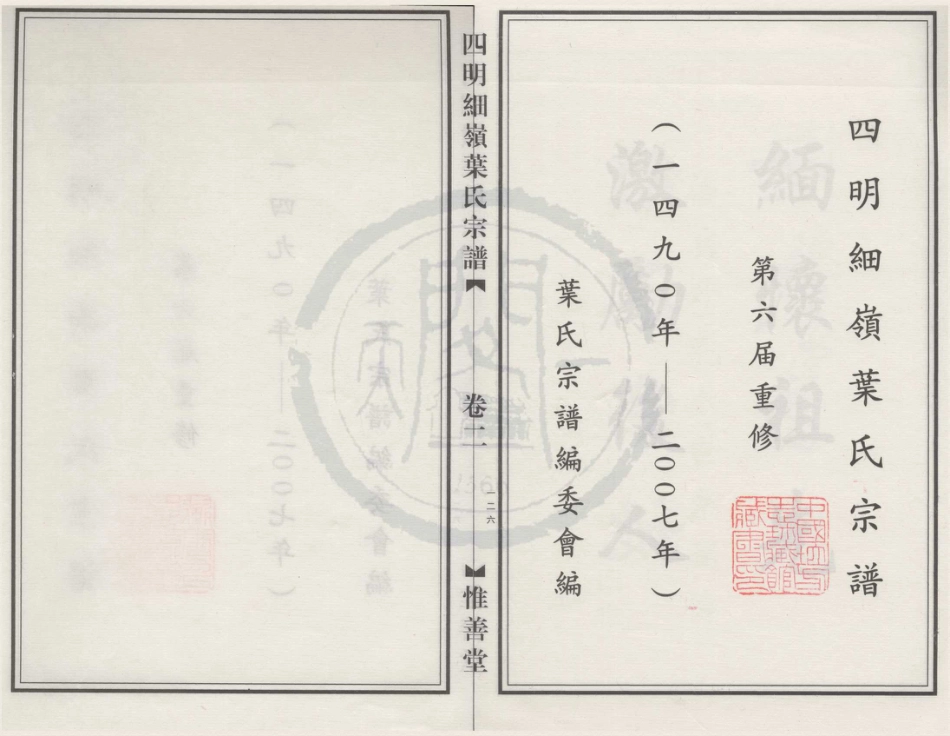 四明細嶺葉氏宗譜
第六届重修
（一四九〇年——二〇〇七年）
葉氏宗譜編委會編
四明細嶺葉氏宗譜
卷二
一二六
惟善堂